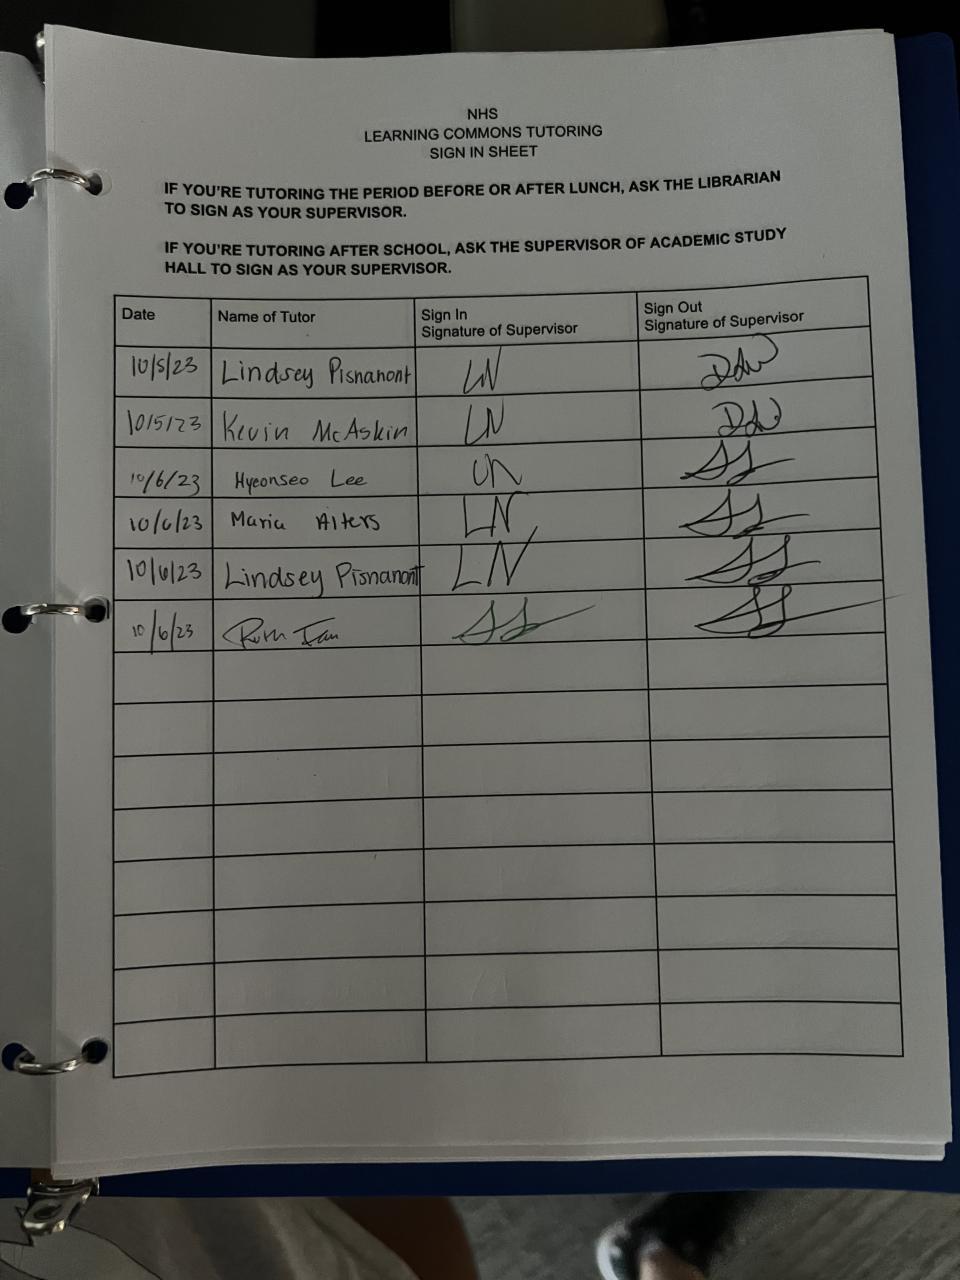 NHS
LEARNING COMMONS TUTORING
SIGN IN SHEET
IF YOU'RE TUTORING THE PERIOD BEFORE OR AFTER LUNCH, ASK THE LIBRARIAN
TO SIGN AS YOUR SUPERVISOR.
IF YOU'RE TUTORING AFTER SCHOOL, ASK THE SUPERVISOR OF ACADEMIC STUDY
HALL TO SIGN AS YOUR SUPERVISOR.
Date Name of Tutor Sign In Signature of Supervisor Sign Out Signature of Supervisor
10/5/23 Lindsey Pisnanont LN
10/5/23 Kevin McAskin LN
10/6/23 Hyeonseo Lee
10/6/23 Maria LN
10/6/23 Lindsey Pisnanont LN
10/6/23 Ruth